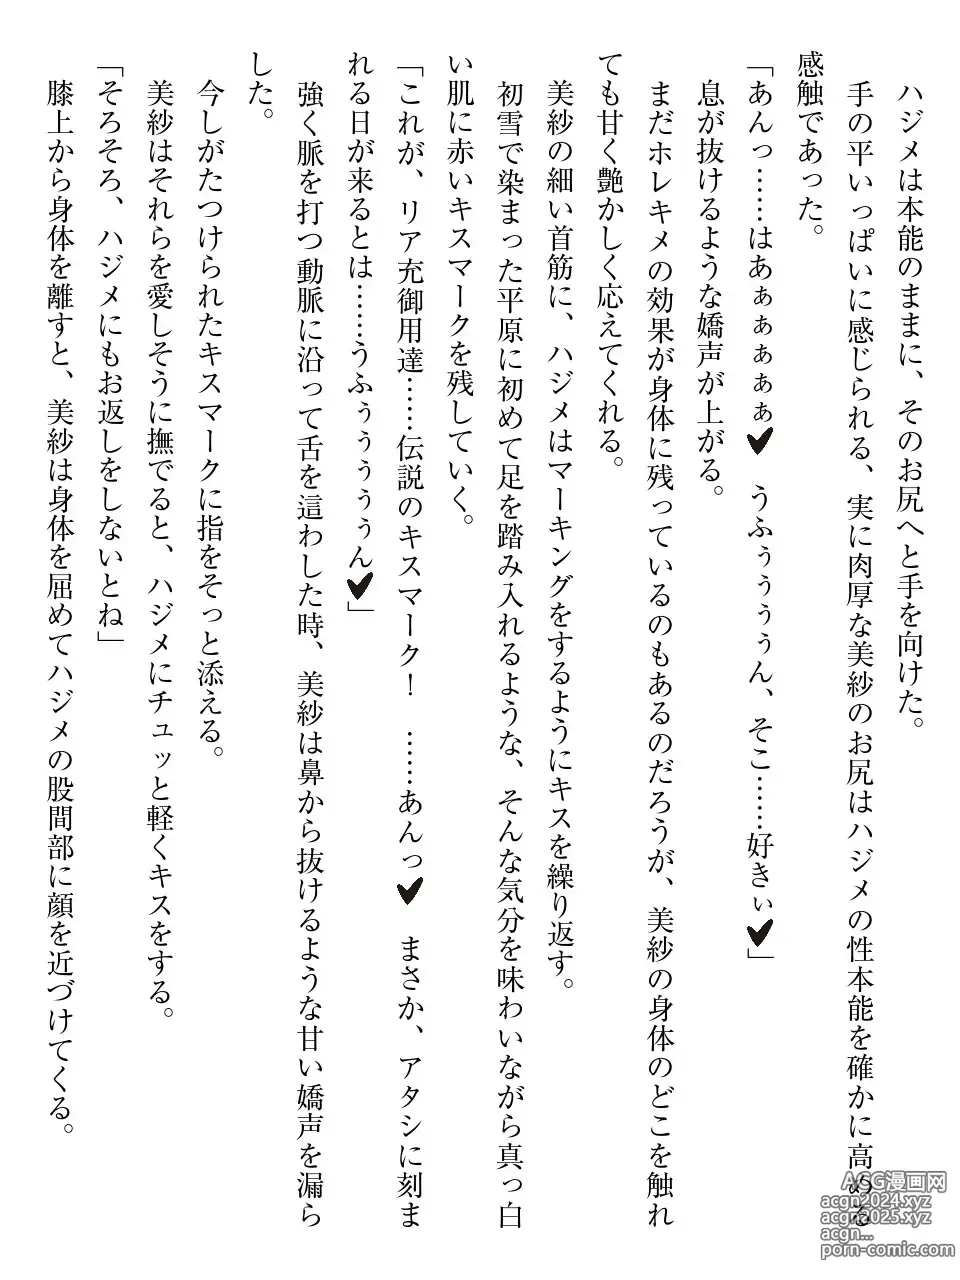 ハジメは本能のままに、そのお尻へと手を向けた。
手の平いっぱいに感じられる、実に肉厚な美紗のお尻はハジメの性本能を確かに高める
感触であった。
「あんっ……はあぁぁぁぁ♥　うふぅぅぅぅん、そこ……好きぃ♥」
息が抜けるような嬌声が上がる。
まだホレキメの効果が身体に残っているのもあるのだろうが、美紗の身体のどこを触れ
ても甘く艶かしく応えてくれる。
美紗の細い首筋に、ハジメはマーキングをするようにキスを繰り返す。
初雪で染まった平原に初めて足を踏み入れるような、そんな気分を味わいながら真っ白
い肌に赤いキスマークを残していく。
「これが、リア充御用達……伝説のキスマーク！　……あんっ♥　まさか、アタシに刻ま
れる日が来るとは……うふぅぅぅぅぅん♥」
強く脈を打つ動脈に沿って舌を這わした時、美紗は鼻から抜けるような甘い嬌声を漏ら
した。
今しがたつけられたキスマークに指をそっと添える。
美紗はそれらを愛しそうに撫でると、ハジメにチュッと軽くキスをする。
「そろそろ、ハジメにもお返しをしないとね」
膝上から身体を離すと、美紗は身体を屈めてハジメの股間部に顔を近づけてくる。
ACG漫画网
acgn2024.xyz
acgn2025.xyz
acgn...
porn-comic.com